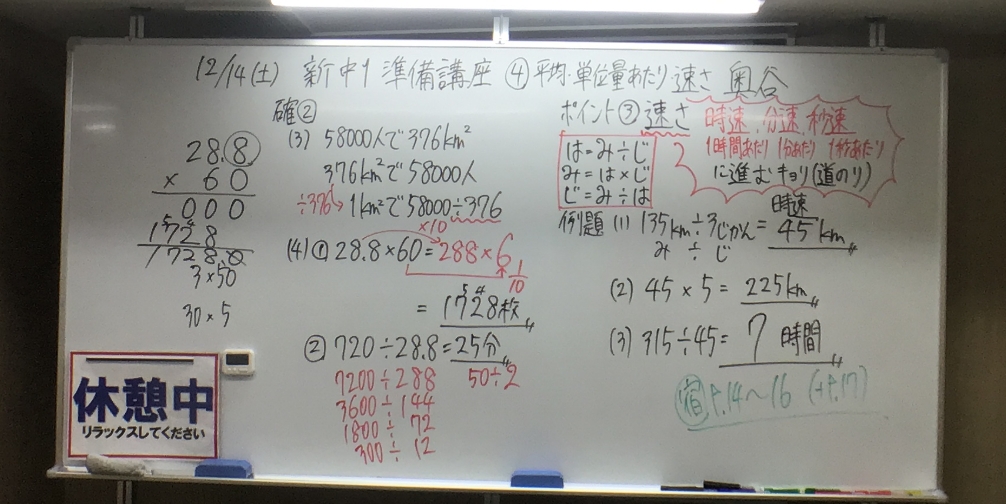 12/14(土) 新中1 準備講座 ④平均・単位量あたり 速さ 奥谷
28.8
× 60
000
1728
1728.0
3×50
30×5
休憩中
リラックスしてください
確②
(3) 58000人で376km²
376km²で58000人
÷376 1km²で58000÷376
×10
(4)① 28.8×60=288×6
1/10
=1728枚
② 720÷28.8=25分
7200÷288 50÷2
3600÷144
1800÷72
300÷12
ポイント③ 速さ
は=み÷じ
み=は×じ
じ=み÷は
時速、分速、秒速
1時間あたり 1分あたり 1秒あたり
に進むキョリ(道のり)
例題 (1) 135km÷3じかん=時速45km
み ÷ じ
(2) 45×5=225km
(3) 315÷45=7時間
宿 P.14～16 (+P.17)